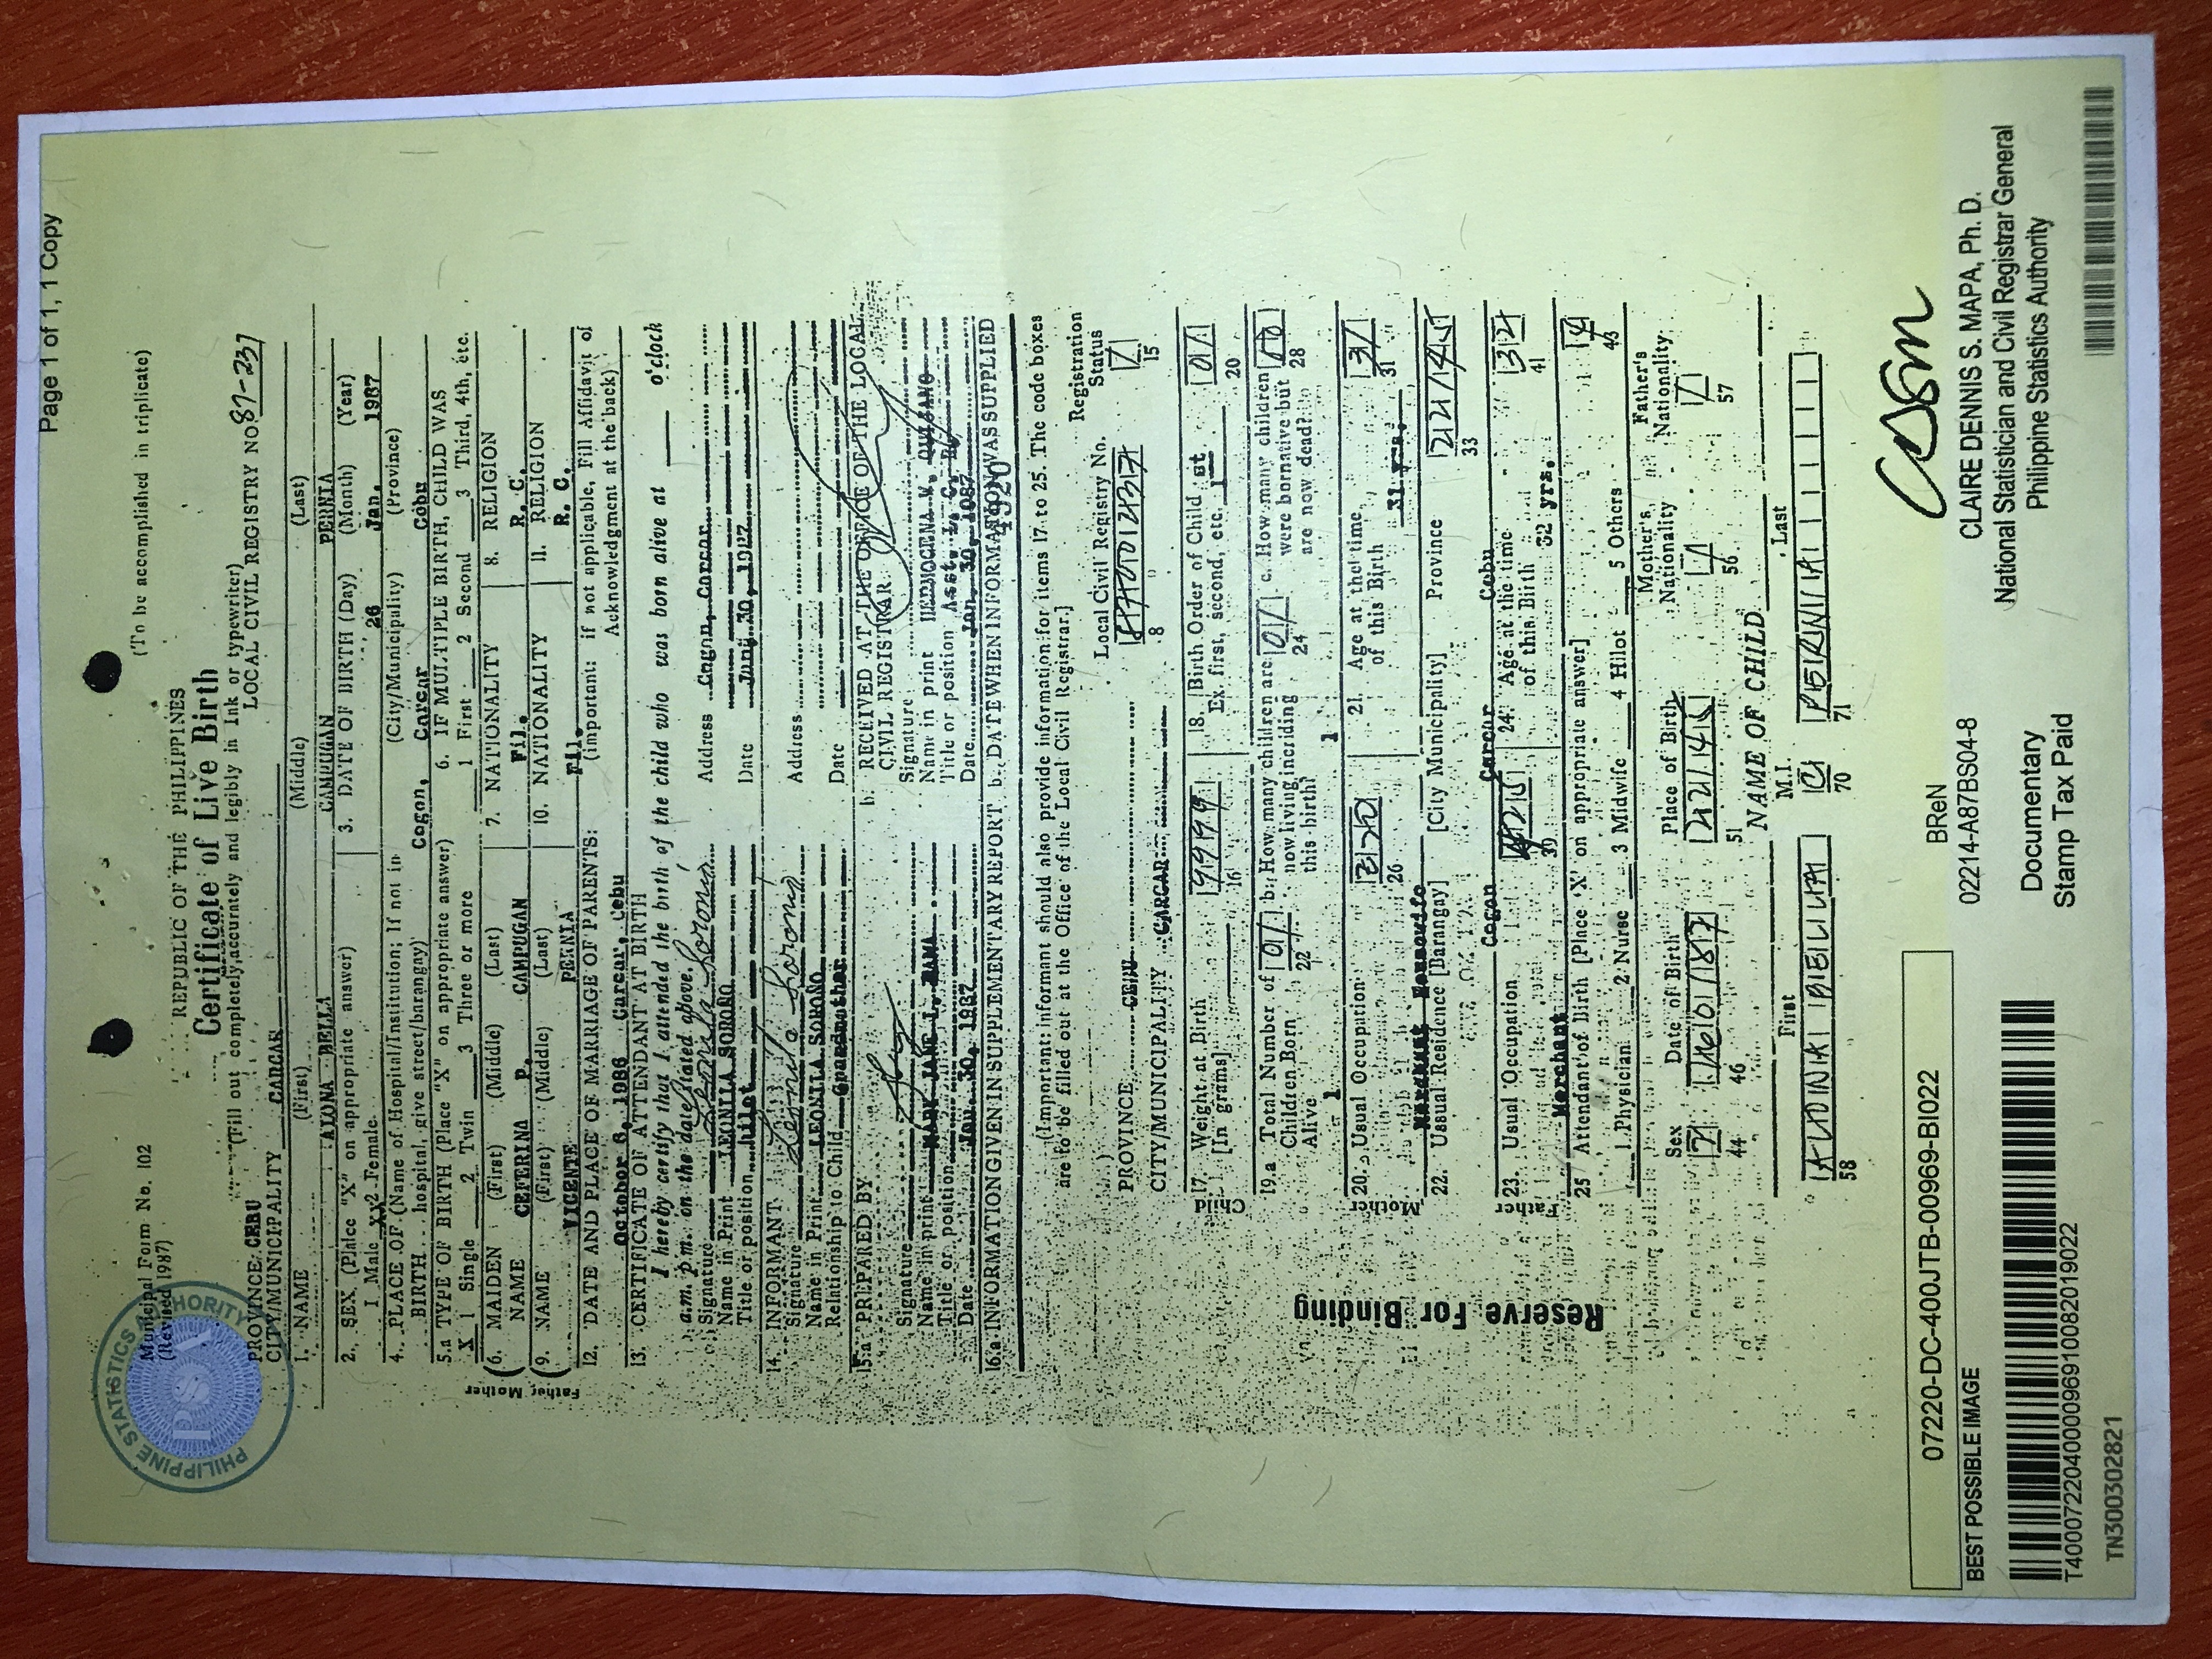 Page 1 of 1, 1 Copy
Municipal Form No. 102
(Revised 1987)
(To be accomplished in triplicate)
REPUBLIC OF THE PHILIPPINES
Certificate of Live Birth
(Fill out completely, accurately and legibly in Ink or typewriter)
PROVINCE CEBU
LOCAL CIVIL REGISTRY NO 87-237
CITY/MUNICIPALITY CARCAR
1. NAME (First) (Middle) (Last)
CAMPUGAN PERNIA
2. SEX (Place "X" on appropriate answer) 3. DATE OF BIRTH (Day) (Month) (Year)
1 Male XX 2 Female 26 Jan. 1987
4. PLACE OF (Name of Hospital/Institution; If not in (City/Municipality) (Province)
BIRTH hospital, give street/barangay) Cogon, Carcar Cebu
5.a TYPE OF BIRTH (Place "X" on appropriate answer) 6. IF MULTIPLE BIRTH, CHILD WAS
X 1 Single 2 Twin 3 Three or more 1 First 2 Second 3 Third, 4th, etc.
Mother
(6. MAIDEN (First) (Middle) (Last) 7. NATIONALITY 8. RELIGION
NAME CEFERINA P. CAMPUGAN Fil. R. C.
Father
(9. NAME (First) (Middle) (Last) 10. NATIONALITY 11. RELIGION
VICENTE PERNIA Fil. R. C.
12. DATE AND PLACE OF MARRIAGE OF PARENTS: (important: if not applicable, Fill Affidavit of
October 6, 1986 Carcar, Cebu Acknowledgment at the back)
13. CERTIFICATE OF ATTENDANT AT BIRTH
I hereby certify that I attended the birth of the child who was born alive at o'clock
a.m. p.m. on the date stated above.
Signature Address Cogon, Carcar
Name in Print LEONILA SOROÑO
Title or position hilot Date
14. INFORMANT
Signature Leonila Soroño Address
Name in Print LEONILA SOROÑO
Relationship to Child Grandmother Date
15.a PREPARED BY b. RECEIVED AT THE OFFICE OF THE LOCAL
CIVIL REGISTRAR
Signature Signature
Name in print MARY JANE L. Name in print
Title or position Title or position Asst.
Date Jan. 30, 1987 Date Jan. 30, 1987
16.a INFORMATION GIVEN IN SUPPLEMENTARY REPORT b. DATE WHEN INFORMATION WAS SUPPLIED
4920
(Important: informant should also provide information for items 17 to 25. The code boxes
are to be filled out at the Office of the Local Civil Registrar.]
Local Civil Registry No. Registration
Status
PROVINCE CEBU
8 15
CITY/MUNICIPALITY CARCAR
Child 17. Weight at Birth 9999 18. Birth Order of Child 1st 01
[In grams] 16 Ex. first, second, etc. 20
19.a Total Number of 01 b. How many children are 01 c. How many children
Children Born 22 now living including 24 were born alive but 28
Alive 1 this birth? 1 are now dead?
Mother 20. Usual Occupation 21. Age at the time 31
26 of this Birth 31 yrs. 31
Housewife
22. Usual Residence [Barangay] [City Municipality] Province
Cogon Carcar Cebu 33
Father 23. Usual Occupation 24. Age at the time 32
39 of this Birth 32 yrs. 41
Merchant
25 Attendant of Birth [Place 'X' on appropriate answer] 4
1 Physician 2 Nurse 3 Midwife 4 Hilot 5 Others 43
Sex Date of Birth Place of Birth Mother's Nationality Father's Nationality
44 46 51 56 57
NAME OF CHILD
First M.I. Last
C PERNIA
58 70 71
Reserve For Binding
07220-DC-400JTB-00969-BI022
BEST POSSIBLE IMAGE
BReN
02214-A87BS04-8
T400072204000096910082019022
TN300302821
Documentary
Stamp Tax Paid
CLAIRE DENNIS S. MAPA, Ph. D.
National Statistician and Civil Registrar General
Philippine Statistics Authority
PHILIPPINE STATISTICS AUTHORITY
PSA